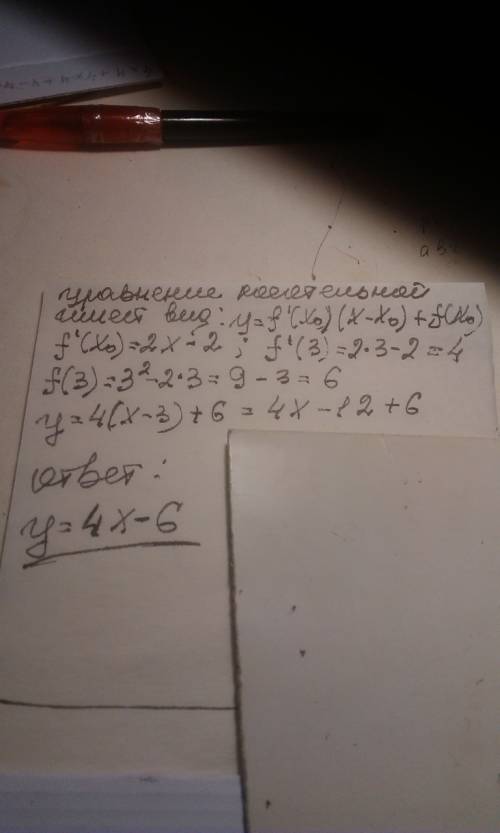 уравнение касательной
имеет вид: y=f'(x₀)(x-x₀)+f(x₀)
f'(x₀)=2x-2; f'(3)=2·3-2=4
f(3)=3²-2·3=9-3=6
y=4(x-3)+6=4x-12+6
ответ:
y=4x-6